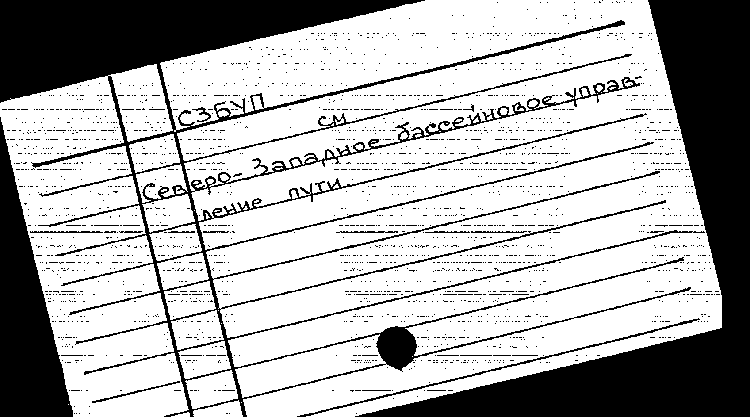 СЗБУП
см
Северо-Западное бассейновое управ-
ление пути.